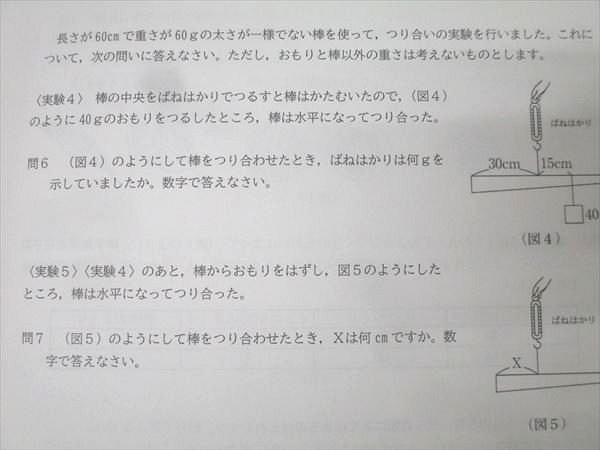 長さが60cmで重さが60gの太さが一様でない棒を使って，つり合いの実験を行いました。これに
ついて，次の問いに答えなさい。ただし，おもりと棒以外の重さは考えないものとします。
〈実験４〉 棒の中央をばねはかりでつるすと棒はかたむいたので，（図４）
のように40gのおもりをつるしたところ，棒は水平になってつり合った。
ばねはかり
問６ （図４）のようにして棒をつり合わせたとき，ばねはかりは何gを
示していましたか。数字で答えなさい。
30cm 15cm
40
（図４）
〈実験５〉〈実験４〉のあと，棒からおもりをはずし，図５のようにした
ところ，棒は水平になってつり合った。
ばねはかり
問７ （図５）のようにして棒をつり合わせたとき，Ｘは何cmですか。数
字で答えなさい。
X
（図５）